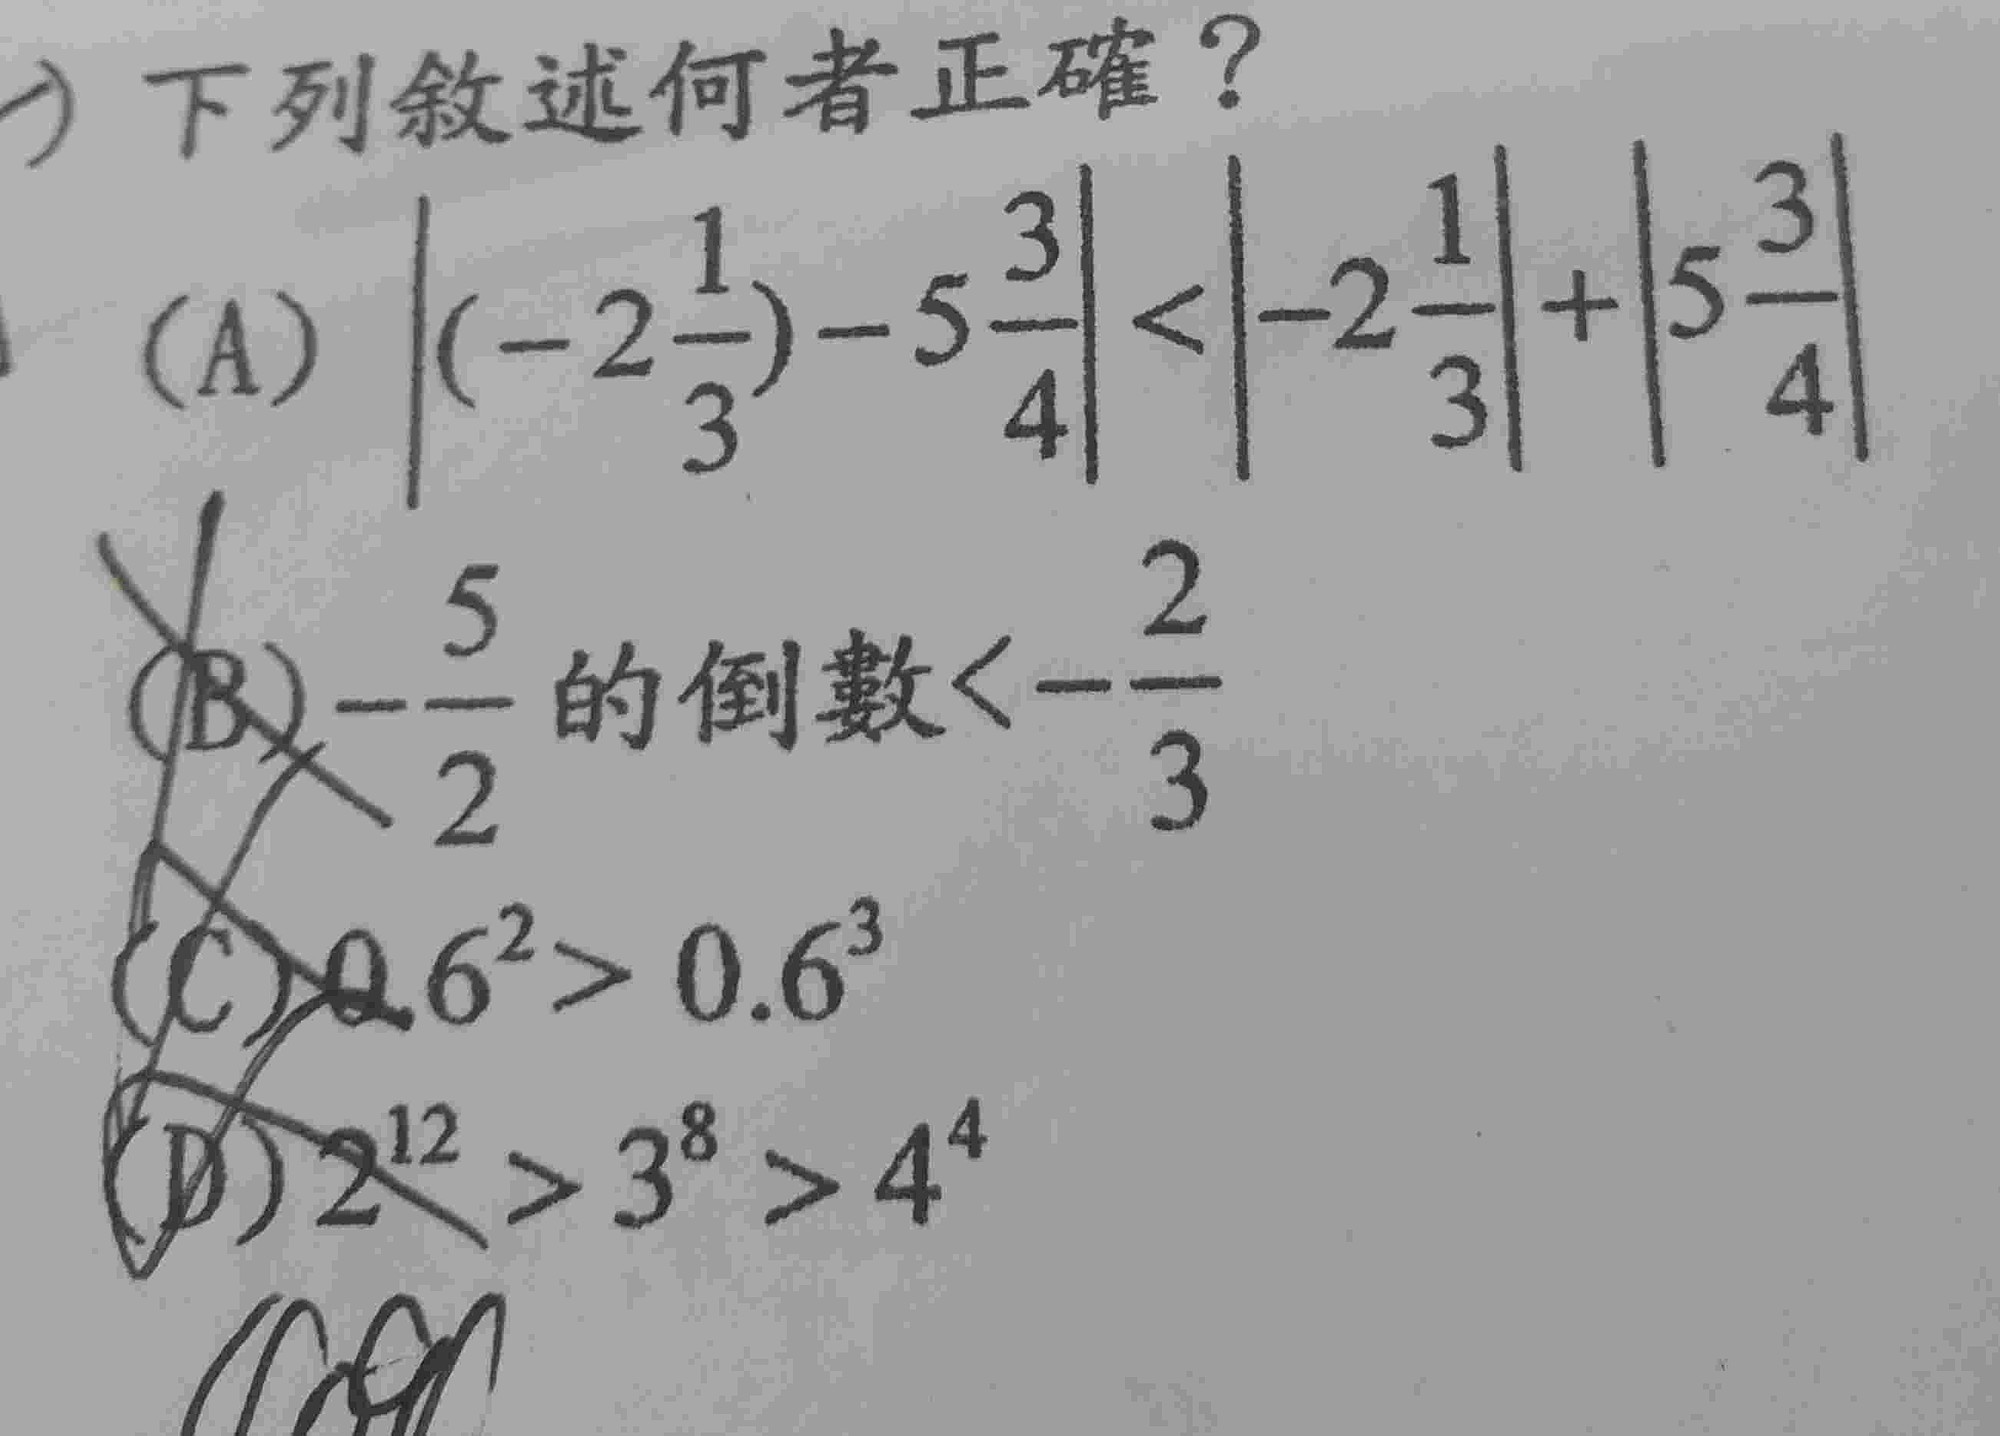 ) 下列敘述何者正確？
(A) |(-2 1/3) - 5 3/4| < |-2 1/3| + |5 3/4|
(B) -5/2 的倒數< -2/3
(C) 0.6² > 0.6³
(D) 2¹² > 3⁸ > 4⁴